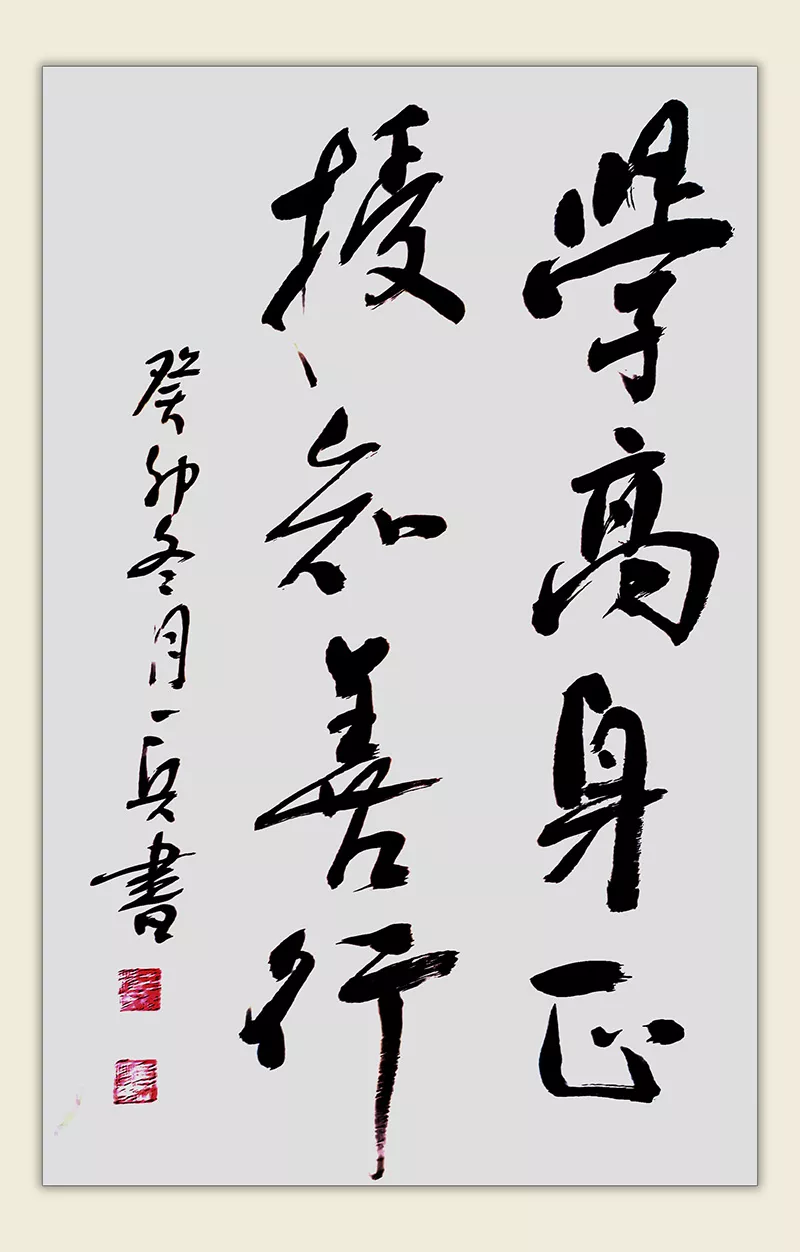 学高身正
授知善行
癸卯冬月一兵書